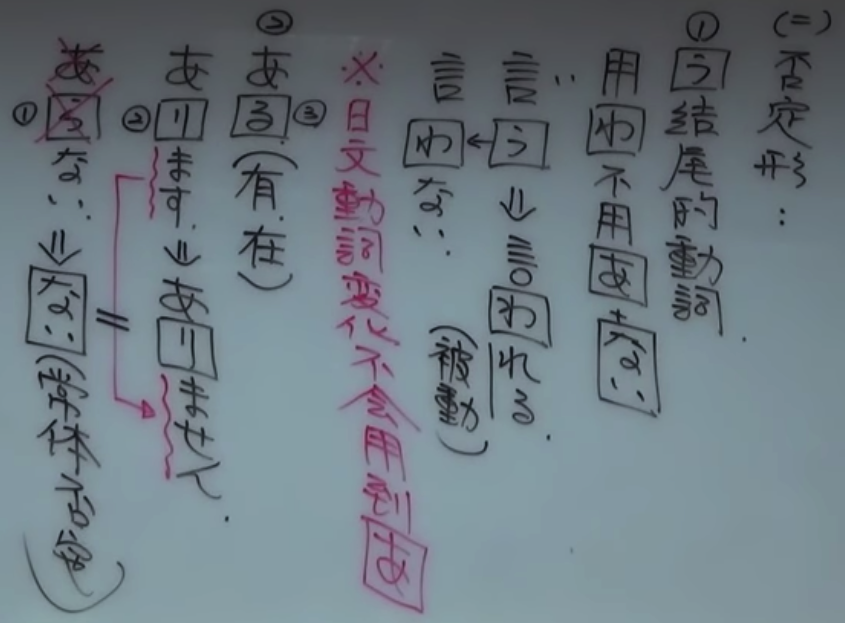 (二)否定形:
①う結尾的動詞.
用わ不用あ+ない
言う⇒言われる.
言わない.(被動)
※日文動詞変化不会用到あ
②ある③(有.在)
あ②ります⇒ありません.
あ①らない⇒ない(常体否定)